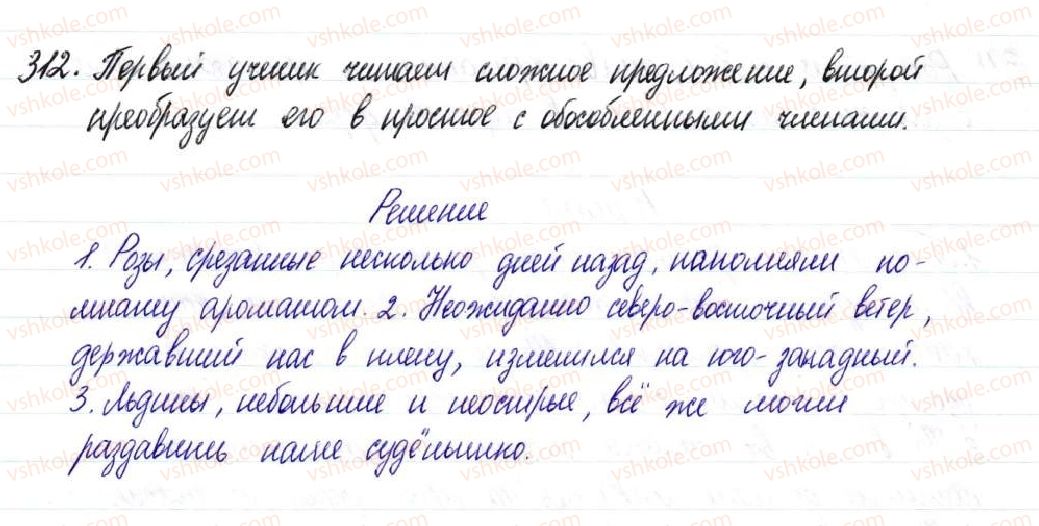 312. Первый ученик читает сложное предложение, второй
преобразует его в простое с обособленными членами.
Решение
1. Розы, срезанные несколько дней назад, наполняли ко-
мнату ароматом. 2. Неожиданно северо-восточный ветер,
державший нас в плену, изменился на юго-западный.
3. Льдины, небольшие и неострые, всё же могли
раздавить наше судёнышко.